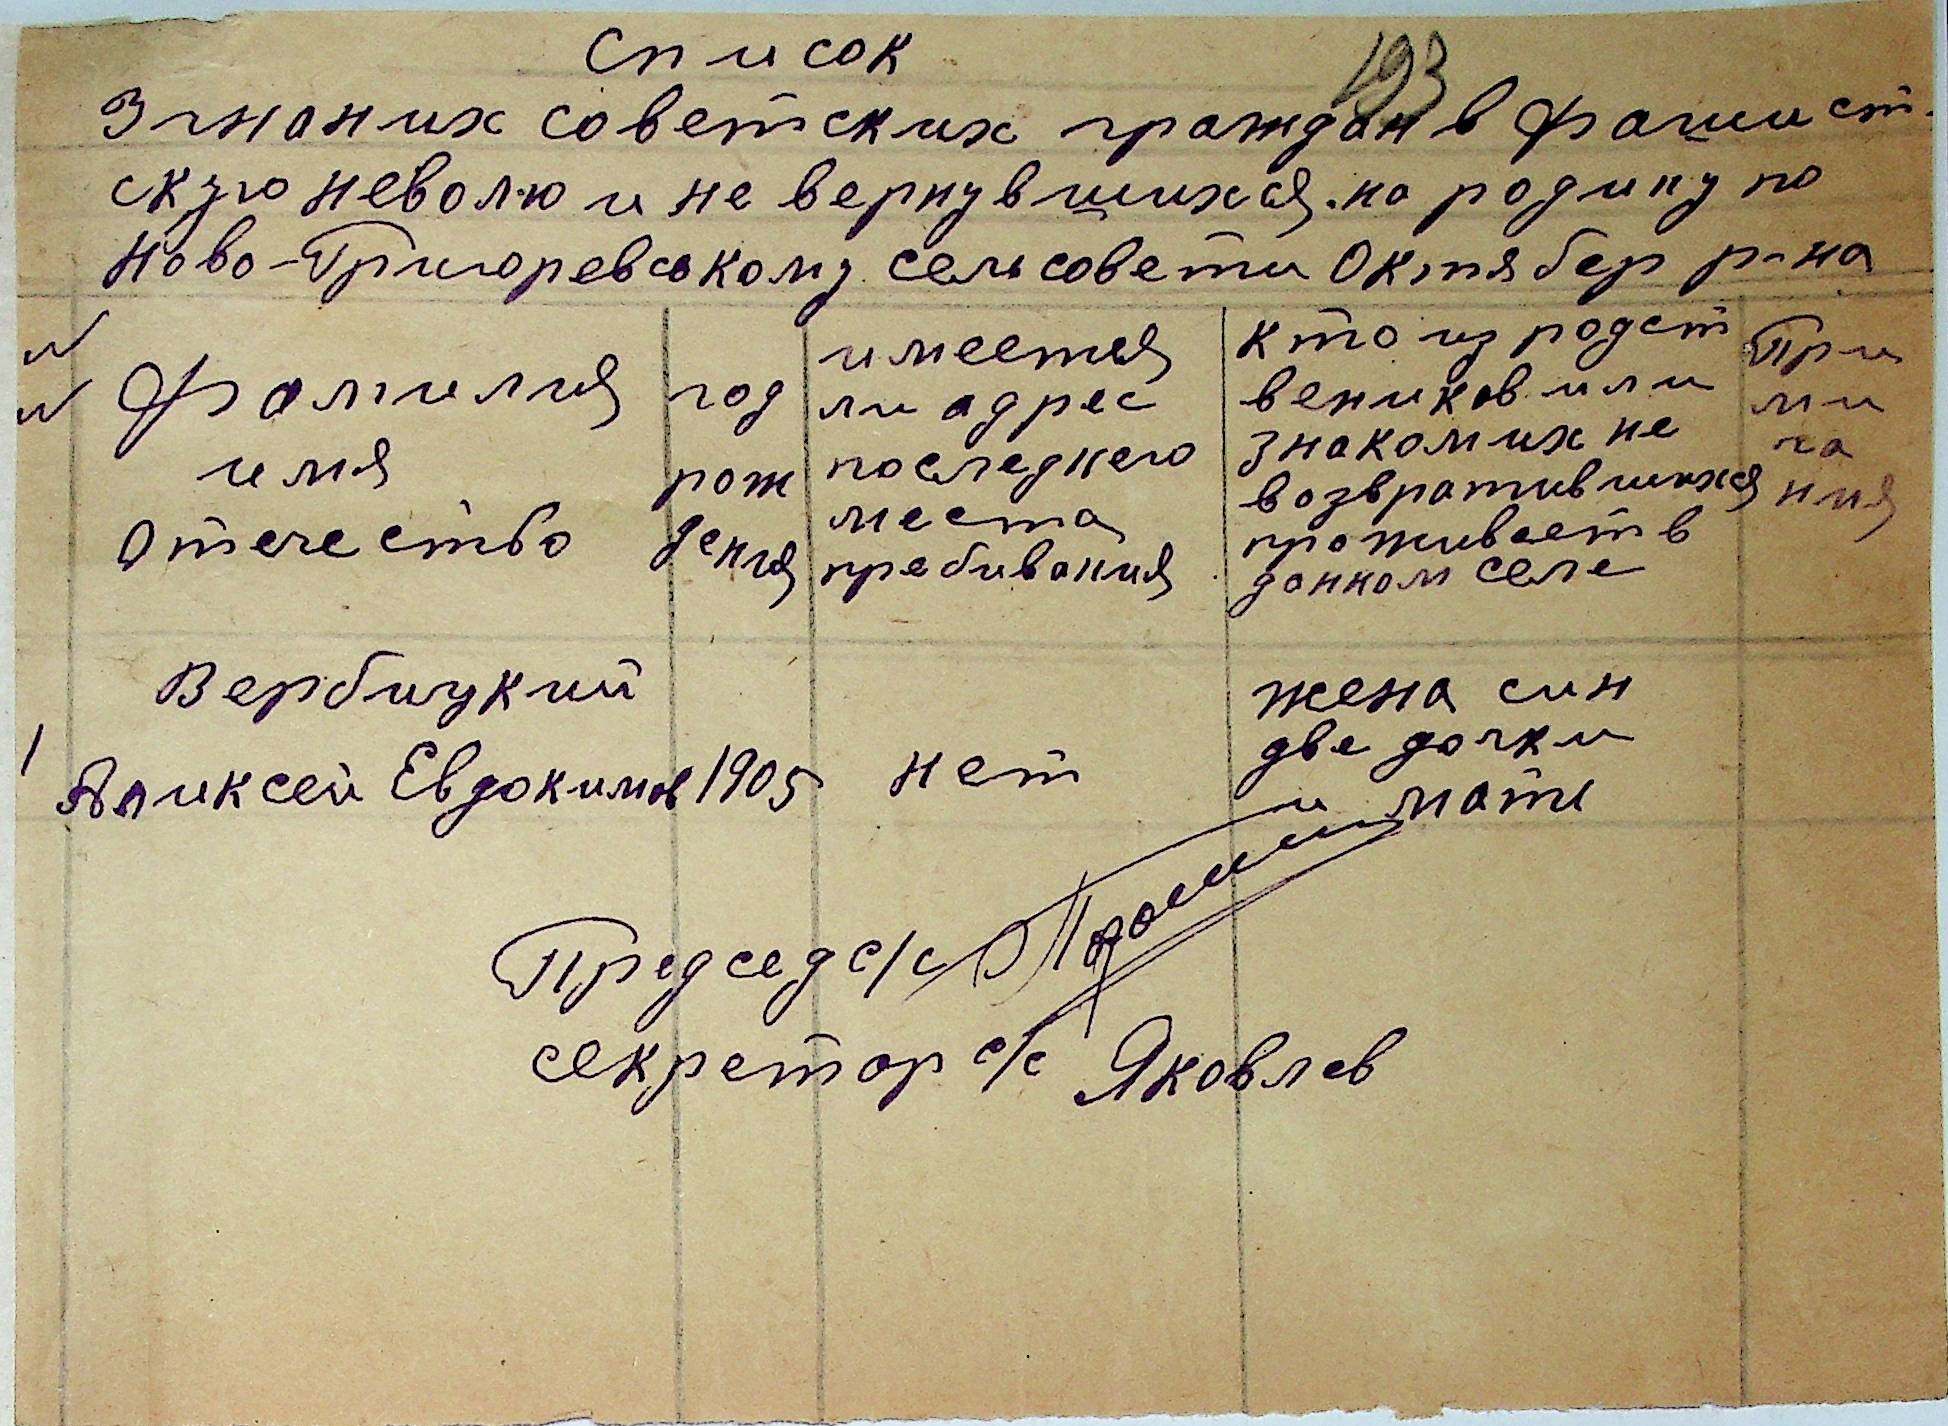 Список
193
Згнаних советских граждан в фашист-
скую неволю и не вернувшихся на родину по
Ново-Григоревському сельсовети Октябер р-на
№ № 
Фамилия
имя
Отечество
год
рож
дения
имеется
ли адрес
последнего
места
пребивания
кто из родст
веников или
знакомих не
возвратившихся
проживает в
данном селе
При
ми
ча
ния
1
Вербицкий
Аликсей Евдокимов
1905
нет
жена син
две дочки
и мати
Председ с/с
секретар с/с Яковлев